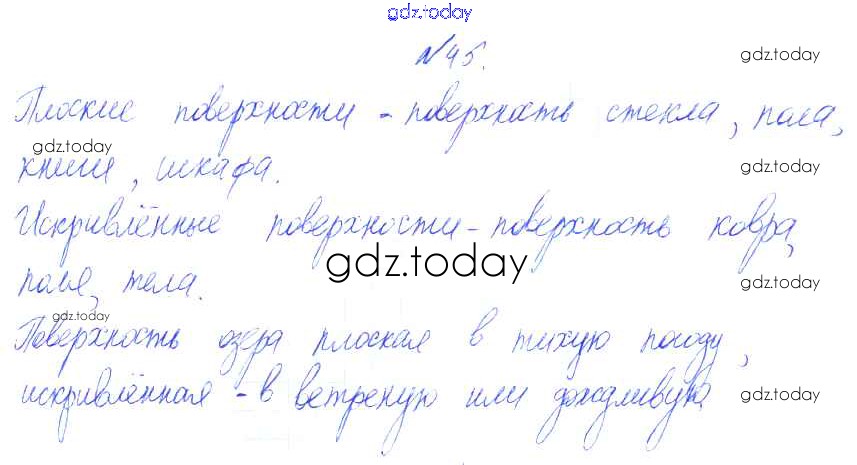 gdz.today
№45.
gdz.today
Плоские поверхности - поверхность стекла, пола,
gdz.today
книги, шкафа.
gdz.today
Искривлённые поверхности - поверхность ковра,
gdz.today
поля, тела.
gdz.today
gdz.today
Поверхность озера плоская в тихую погоду,
искривлённая - в ветреную или дождливую.
gdz.today